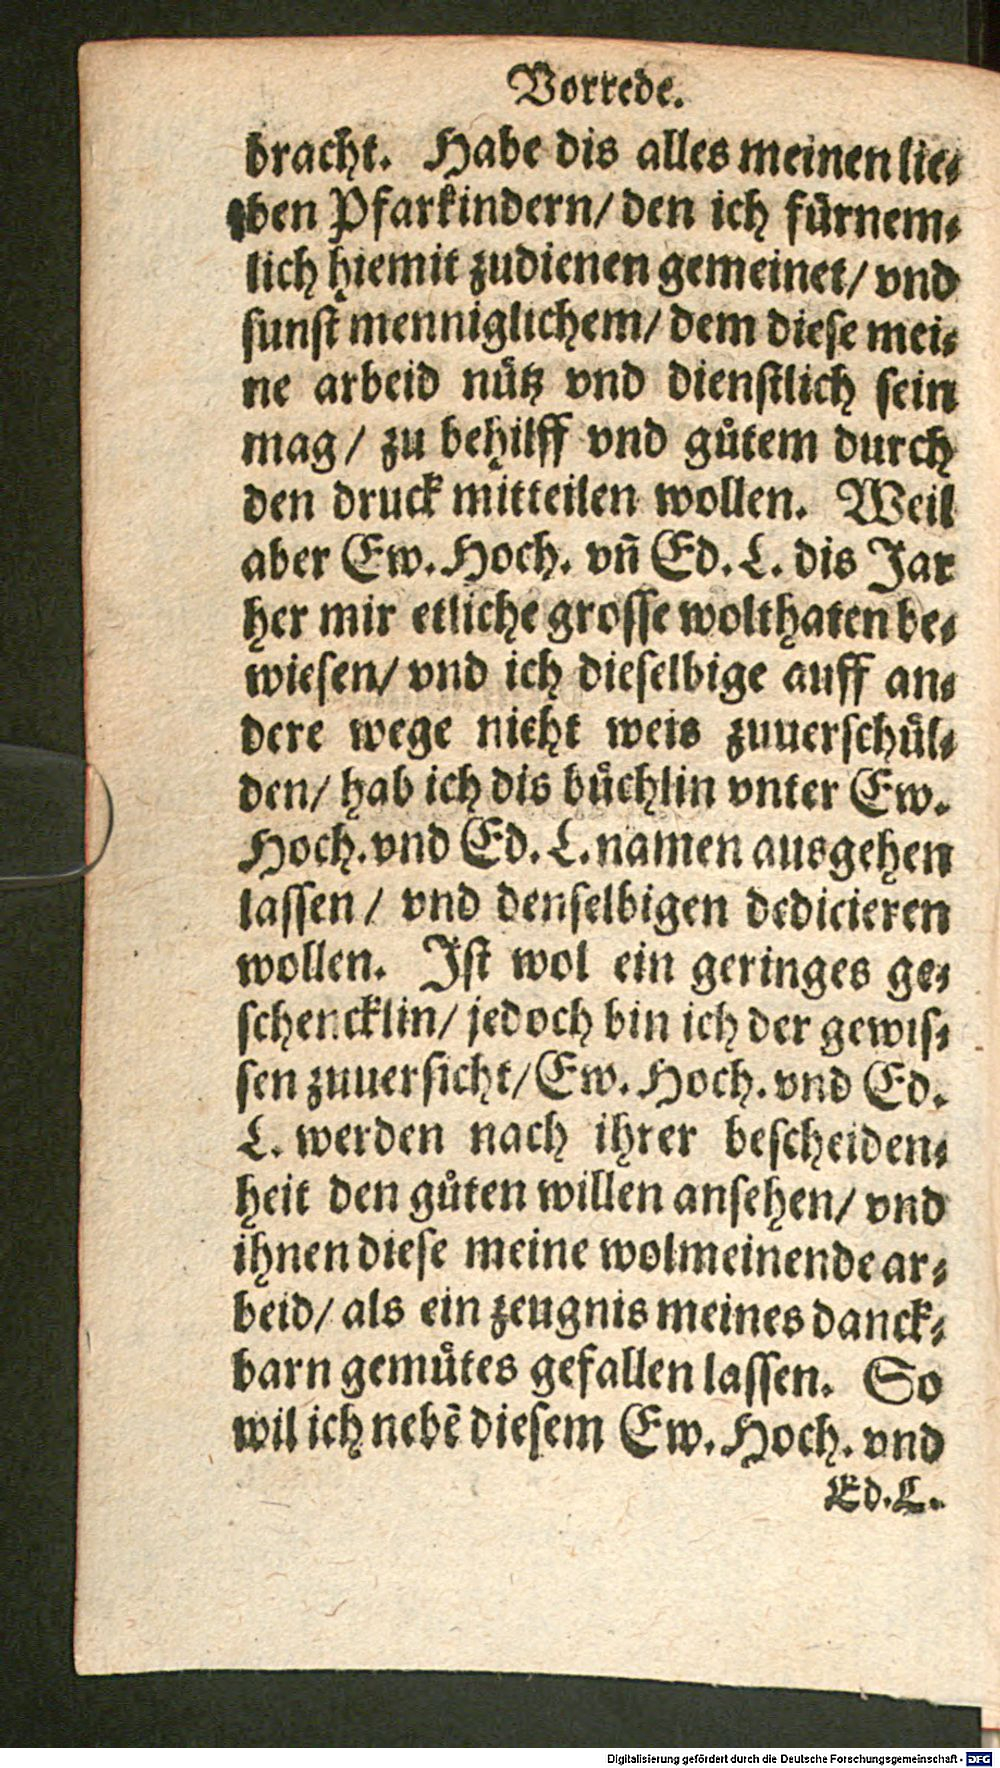 Vorrede.
bracht. Habe dis alles meinen lie⸗
ben Pfarkindern/ den ich fürnem⸗
lich hiemit zudienen gemeinet/ vnd
sunst menniglichem/ dem diese mei⸗
ne arbeid nuͤtz vnd dienstlich sein
mag/ zu behilff vnd guͦtem durch
den druck mitteilen wollen. Weil
aber Ew. Hoch. vñ Ed. L. dis Jar
her mir etliche grosse wolthaten be⸗
wiesen/ vnd ich dieselbige auff an⸗
dere wege nicht weis zuuerschuͤl⸗
den/ hab ich dis buͤchlin vnter Ew.
Hoch. vnd Ed. L. namen ausgehen
lassen/ vnd denselbigen dedicieren
wollen. Ist wol ein geringes ge⸗
schencklin/ jedoch bin ich der gewis⸗
sen zuuersicht/ Ew. Hoch. vnd Ed.
L. werden nach ihrer bescheiden⸗
heit den guͦten willen ansehen/ vnd
ihnen diese meine wolmeinende ar⸗
beid/ als ein zeugnis meines danck⸗
barn gemuͤtes gefallen lassen. So
wil ich nebẽ diesem Ew. Hoch. vnd
Ed. L.
Digitalisierung gefördert durch die Deutsche Forschungsgemeinschaft - DFG